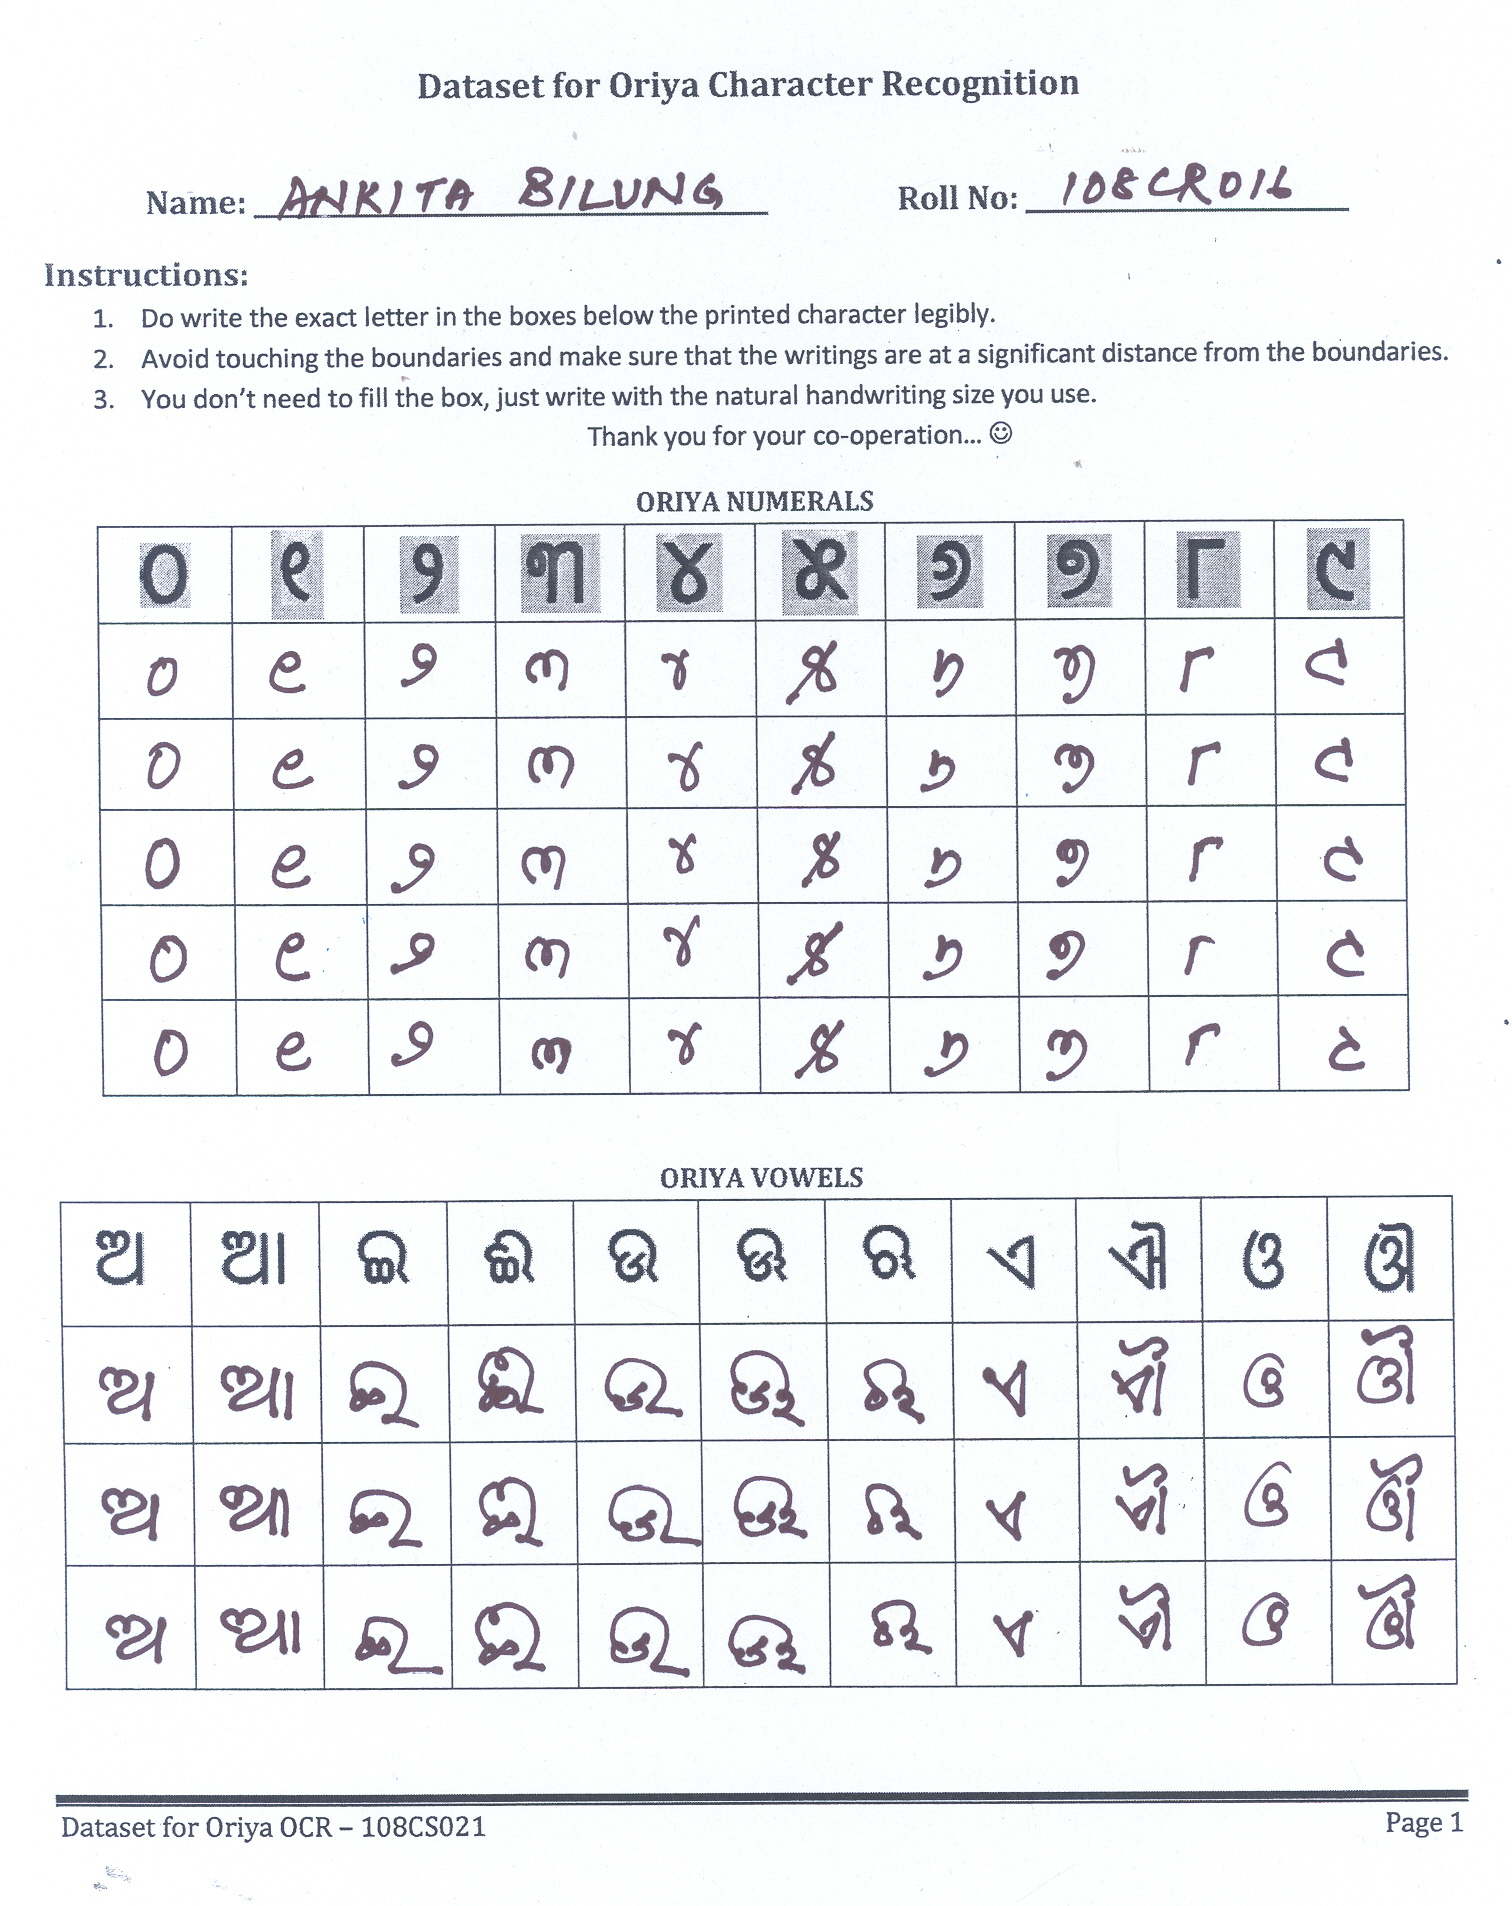 Dataset for Oriya Character Recognition
Name: ANKITA BILUNG Roll No: 108CR016
Instructions:
1. Do write the exact letter in the boxes below the printed character legibly.
2. Avoid touching the boundaries and make sure that the writings are at a significant distance from the boundaries.
3. You don't need to fill the box, just write with the natural handwriting size you use.
Thank you for your co-operation... ☺
ORIYA NUMERALS
୦ ୧ ୨ ୩ ୪ ୫ ୬ ୭ ୮ ୯
୦ ୧ ୨ ୩ ୪ ୫ ୬ ୭ ୮ ୯
୦ ୧ ୨ ୩ ୪ ୫ ୬ ୭ ୮ ୯
୦ ୧ ୨ ୩ ୪ ୫ ୬ ୭ ୮ ୯
୦ ୧ ୨ ୩ ୪ ୫ ୬ ୭ ୮ ୯
୦ ୧ ୨ ୩ ୪ ୫ ୬ ୭ ୮ ୯
ORIYA VOWELS
ଅ ଆ ଇ ଈ ଉ ଊ ଋ ଏ ଐ ଓ ଔ
ଅ ଆ ଇ ଈ ଉ ଊ ଋ ଏ ଐ ଓ ଔ
ଅ ଆ ଇ ଈ ଉ ଊ ଋ ଏ ଐ ଓ ଔ
ଅ ଆ ଇ ଈ ଉ ଊ ଋ ଏ ଐ ଓ ଔ
Dataset for Oriya OCR – 108CS021 Page 1